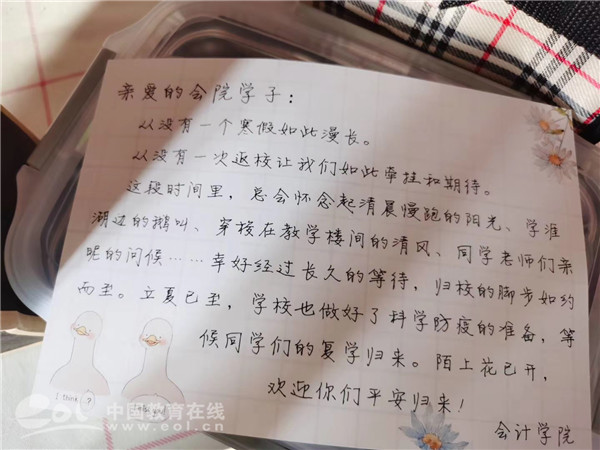 亲爱的会院学子：
从没有一个寒假如此漫长。
从没有一次返校让我们如此牵挂和期待。
这段时间里，总会怀念起清晨慢跑的阳光、学淮
湖边的鹅叫、穿梭在教学楼间的清风、同学老师们亲
昵的问候……幸好经过长久的等待，归校的脚步如约
而至。立夏已至，学校也做好了科学防疫的准备，等
候同学们的复学归来。陌上花已开，
欢迎你们平安归来！
会计学院
I think!?
eol 中国教育在线
www.eol.cn